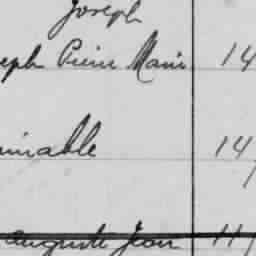 Joseph
eph Pierre Marie 14
mirable 14
Auguste Jean 11